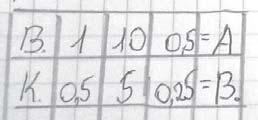 B. 1 10 0,5 = A
K. 0,5 5 0,25 = B.